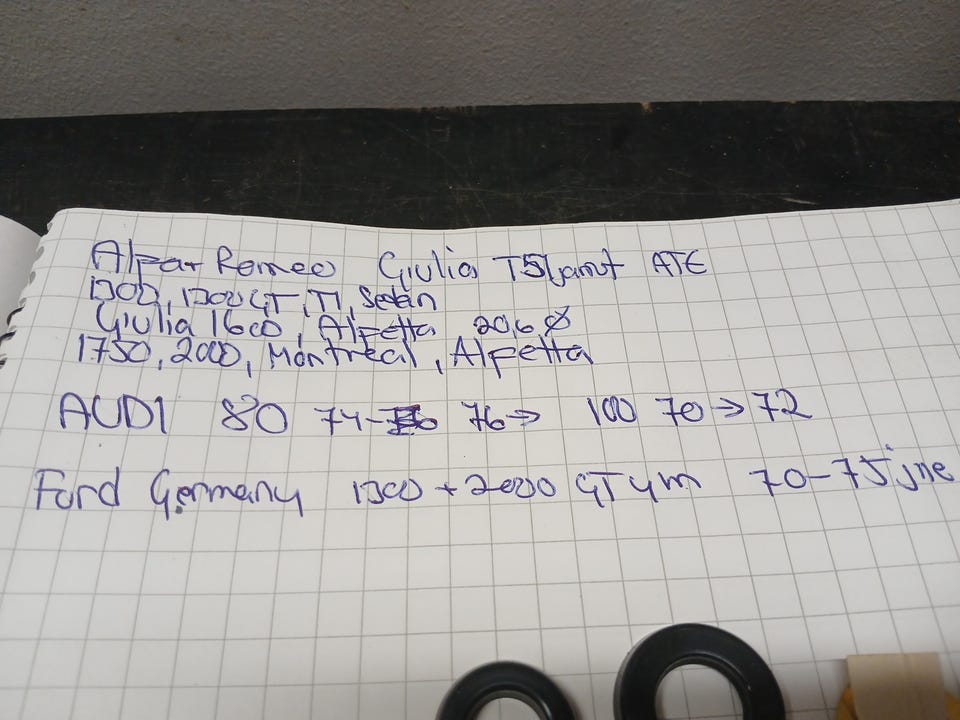 Alpa Romeo Giulia ATE
1300, 1300 GT, TI, Sedan
Giulia 1600, Alpetta 20,6 Ø
1750, 2000, Montreal, Alpetta
AUDI 80 74- 76→ 100 70→72
Ford Germany 1300 + 2000 GT ym 70-75